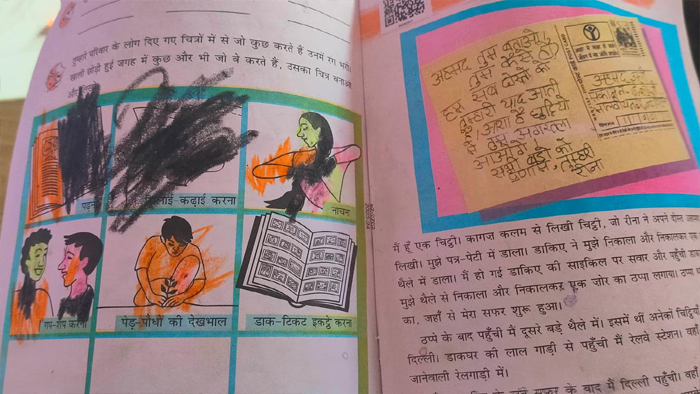 तुम्हारे परिवार के लोग दिए गए चित्रों में से जो कुछ करते हैं उनमें रंग भरो।
खाली छोड़ी हुई जगह में कुछ और भी जो वे करते हैं, उसका चित्र बनाओ
और
सिलाई-कढ़ाई करना
नाचना
गप-शप करना
पेड़-पौधों की देखभाल
डाक-टिकट इकट्ठे करना
अहमद तुम
हम सब दोस्तों को
तुम्हारी याद आती
है आशा है छुट्टियों
में तुम अगरतला
आओगे
सभी बड़ों को
प्रणाम तुम्हारी
रीना
मैं हूँ एक चिट्ठी। कागज कलम से लिखी चिट्ठी, जो रीना ने अपने दोस्त
लिखी। मुझे पत्र-पेटी में डाला। डाकिए ने मुझे निकाला और निकालकर
थैले में डाला। मैं हो गई डाकिए की साइकिल पर सवार और पहुँची
मुझे थैले से निकाला और निकालकर एक जोर का ठप्पा लगाया।
का, जहाँ से मेरा सफर शुरू हुआ।
ठप्पे के बाद पहुँची मैं दूसरे बड़े थैले में। इसमें थीं अनेकों चिट्ठियाँ
दिल्ली। डाकघर की लाल गाड़ी से पहुँची मैं रेलवे स्टेशन। वहाँ
जानेवाली रेलगाड़ी में।
सफर के बाद मैं दिल्ली पहुँची। वहाँ